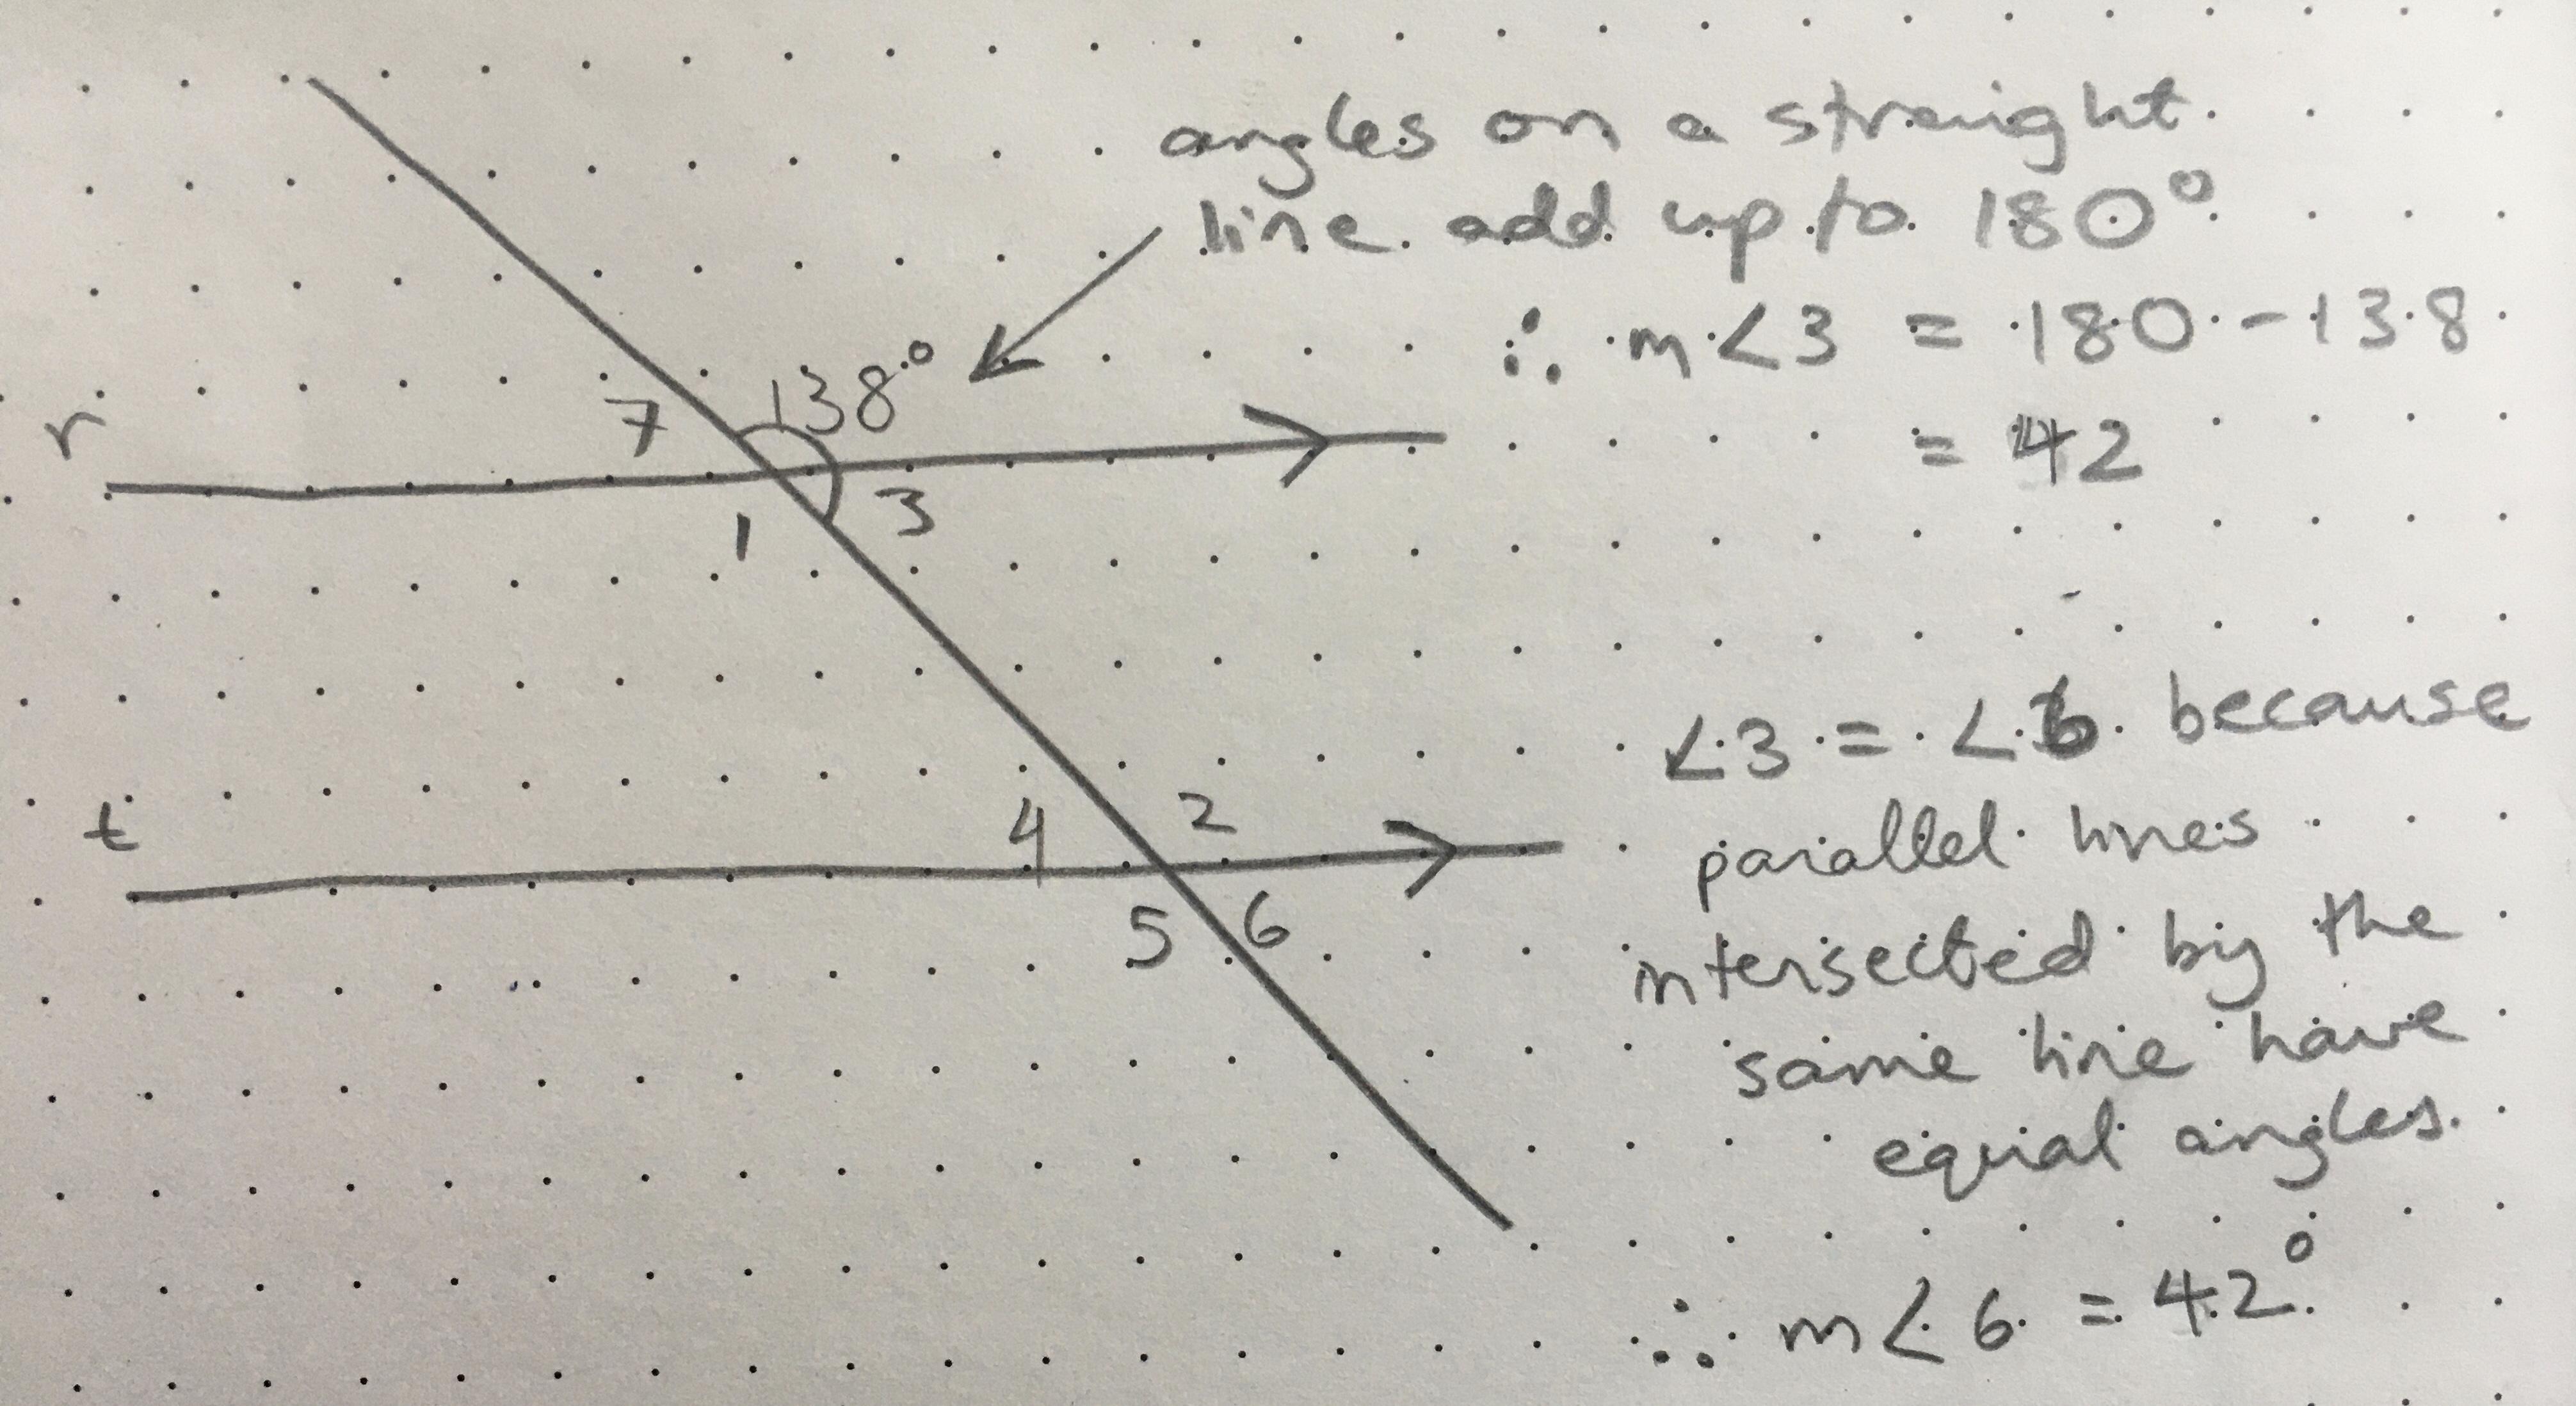 angles on a straight
line add up to 180°
∴ m<3 = 180 - 138
= 42
138°
7
r
3
1
<3 = <6 because
parallel lines
intersected by the
same line have
equal angles.
∴ m<6 = 42°
t
4 2
5 6